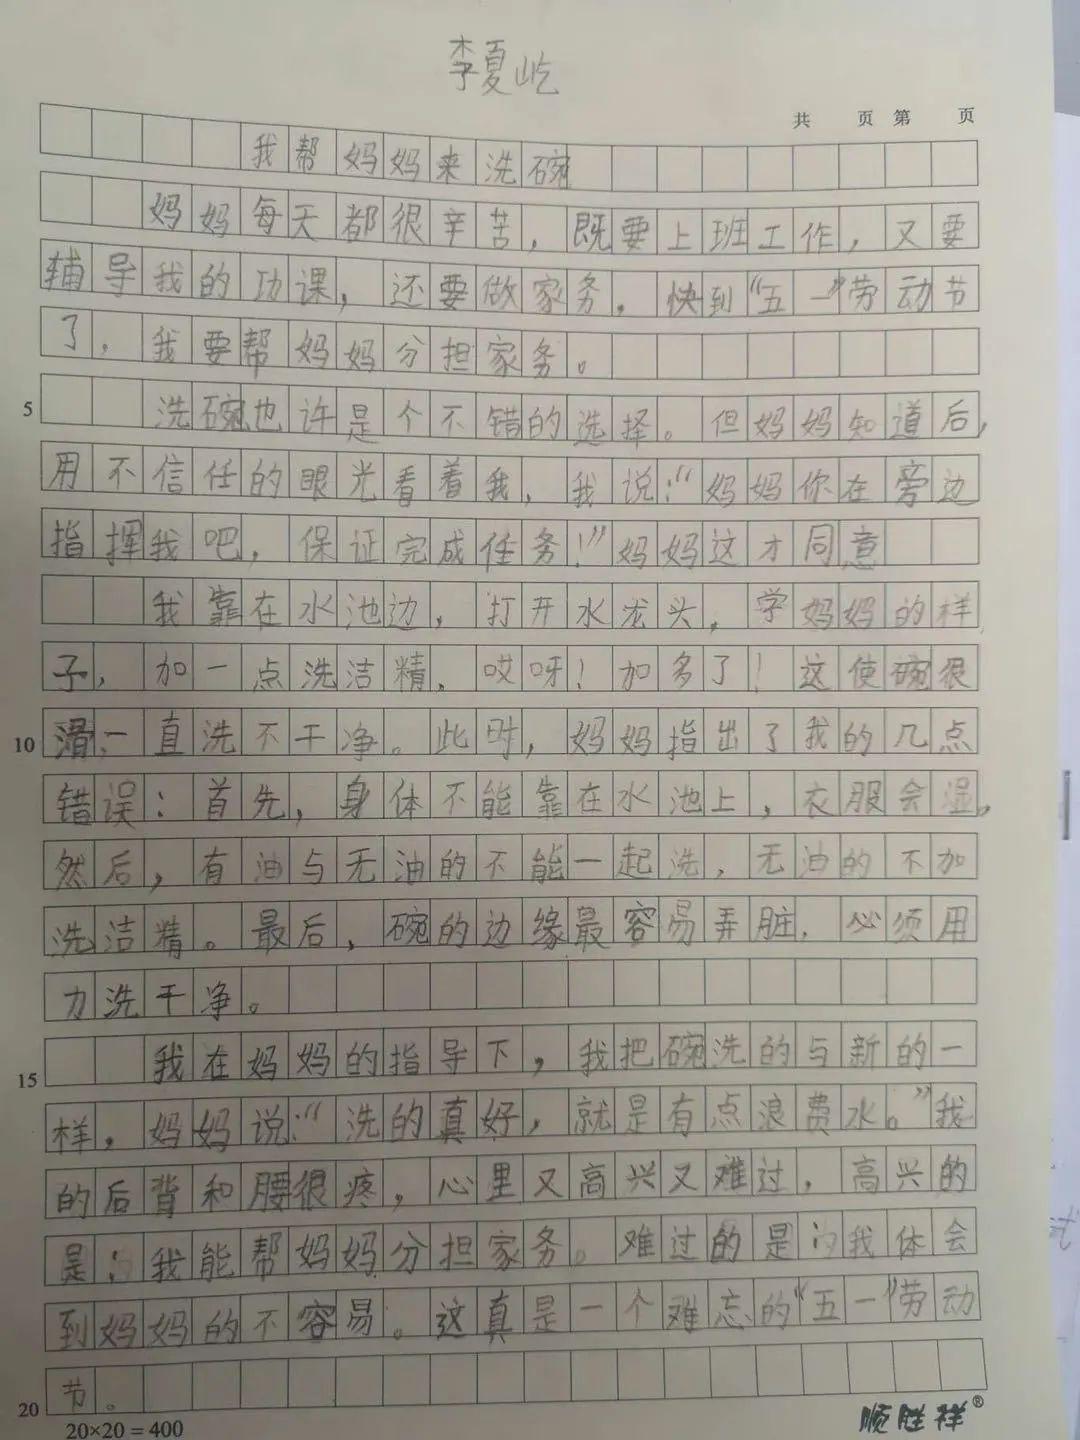 李夏屹
共 页 第 页
我帮妈妈来洗碗
妈妈每天都很辛苦，既要上班工作，又要
辅导我的功课，还要做家务。快到“五一”劳动节
了，我要帮妈妈分担家务。
5
洗碗也许是个不错的选择。但妈妈知道后，
用不信任的眼光看着我，我说：“妈妈你在旁边
指挥我吧，保证完成任务！”妈妈这才同意
我靠在水池边，打开水龙头，学妈妈的样
子，加一点洗洁精，哎呀！加多了！这使碗很
10
滑，一直洗不干净。此时，妈妈指出了我的几点
错误：首先，身体不能靠在水池上，衣服会湿。
然后，有油与无油的不能一起洗，无油的不加
洗洁精。最后，碗的边缘最容易弄脏，必须用
力洗干净。
15
我在妈妈的指导下，我把碗洗的与新的一
样，妈妈说：“洗的真好，就是有点浪费水。”我
的后背和腰很疼，心里又高兴又难过，高兴的
是：我能帮妈妈分担家务。难过的是：我体会
到妈妈的不容易。这真是一个难忘的“五一”劳动
节。
20
20×20=400
顺胜祥®